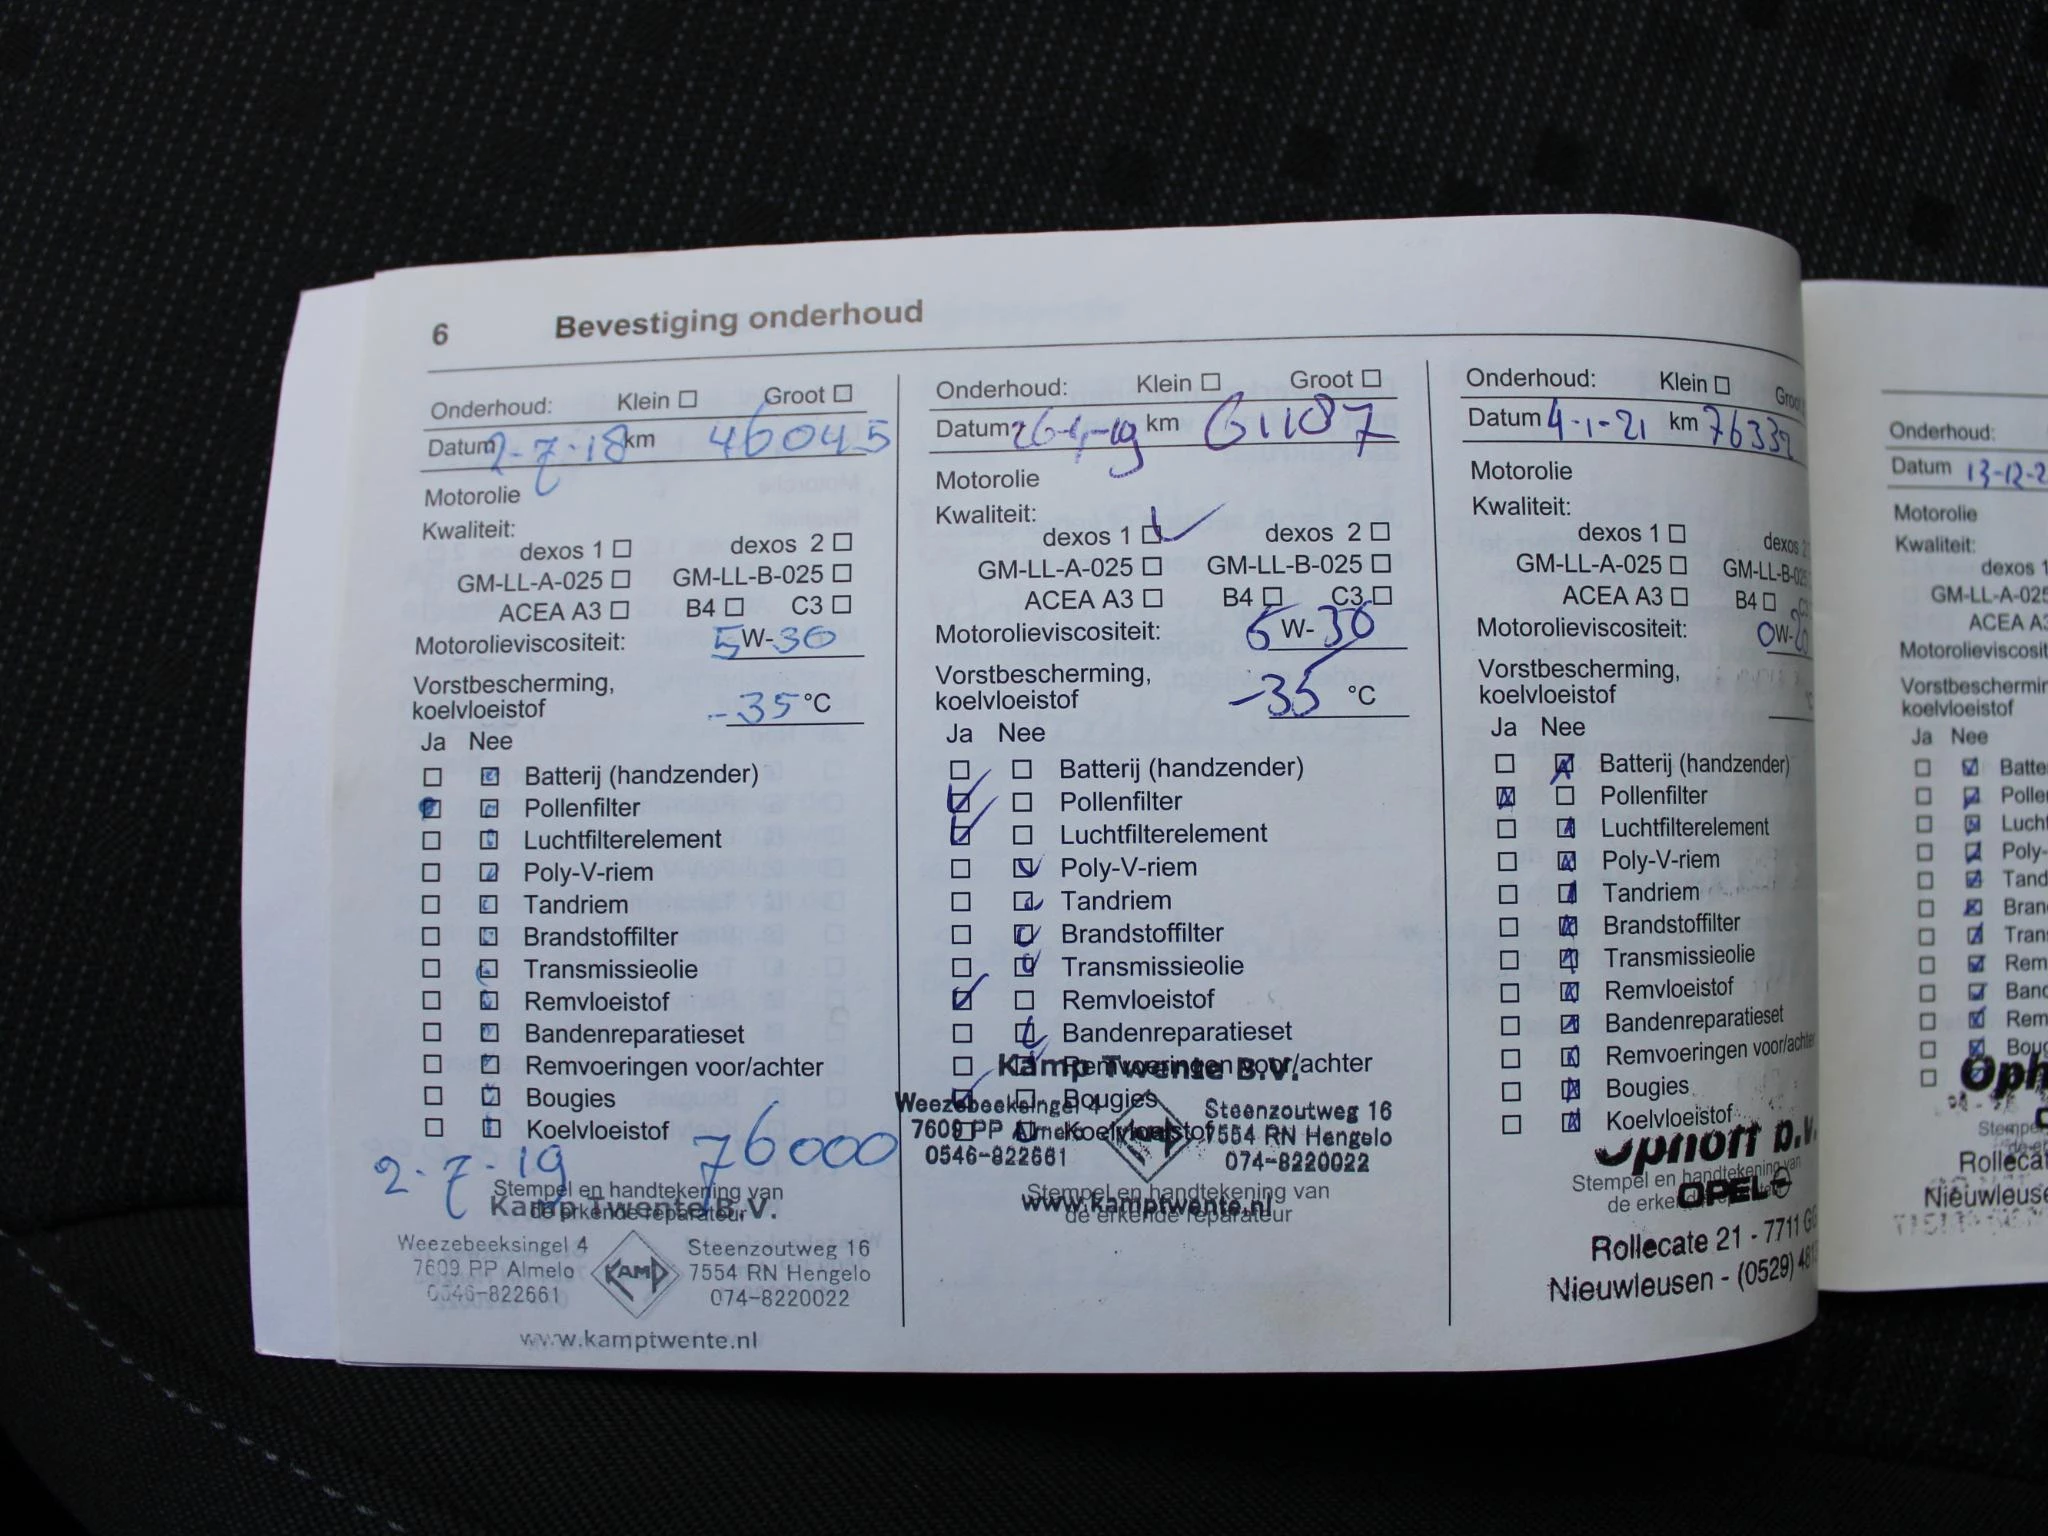 6 Bevestiging onderhoud
Onderhoud: Klein ☐ Groot ☐
Datum 2-7-18 km 46045
Motorolie
Kwaliteit:
dexos 1 ☐ dexos 2 ☐
GM-LL-A-025 ☐ GM-LL-B-025 ☐
ACEA A3 ☐ B4 ☐ C3 ☐
Motorolieviscositeit: 5 W- 30
Vorstbescherming,
koelvloeistof -35 °C
Ja Nee
Batterij (handzender)
Pollenfilter
Luchtfilterelement
Poly-V-riem
Tandriem
Brandstoffilter
Transmissieolie
Remvloeistof
Bandenreparatieset
Remvoeringen voor/achter
Bougies
Koelvloeistof
2-7-19 76000
Stempel en handtekening van
de erkende reparateur
Kamp Twente B.V.
Weezebeeksingel 4 Steenzoutweg 16
7609 PP Almelo KAMP 7554 RN Hengelo
0546-822661 074-8220022
www.kamptwente.nl
Onderhoud: Klein ☐ Groot ☐
Datum 26-4-19 km 61187
Motorolie
Kwaliteit:
dexos 1 ☑ dexos 2 ☐
GM-LL-A-025 ☐ GM-LL-B-025 ☐
ACEA A3 ☐ B4 ☐ C3 ☐
Motorolieviscositeit: 5 W- 30
Vorstbescherming,
koelvloeistof -35 °C
Ja Nee
Batterij (handzender)
Pollenfilter
Luchtfilterelement
Poly-V-riem
Tandriem
Brandstoffilter
Transmissieolie
Remvloeistof
Bandenreparatieset
Remvoeringen voor/achter
Bougies
Koelvloeistof
Kamp Twente B.V.
Weezebeeksingel 4 Steenzoutweg 16
7609 PP Almelo 7554 RN Hengelo
0546-822661 074-8220022
www.kamptwente.nl
Stempel en handtekening van
de erkende reparateur
Onderhoud: Klein ☐ Groot
Datum 4-1-21 km 76332
Motorolie
Kwaliteit:
dexos 1 ☐ dexos 2
GM-LL-A-025 ☐ GM-LL-B-025
ACEA A3 ☐ B4 ☐ C3
Motorolieviscositeit: 0W-20
Vorstbescherming,
koelvloeistof °C
Ja Nee
Batterij (handzender)
Pollenfilter
Luchtfilterelement
Poly-V-riem
Tandriem
Brandstoffilter
Transmissieolie
Remvloeistof
Bandenreparatieset
Remvoeringen voor/achter
Bougies
Koelvloeistof
Ophoff b.v.
Stempel en handtekening van
de erkende
OPEL
Rollecate 21 - 7711 GG
Nieuwleusen - (0529) 481
Onderhoud:
Datum 13-12-2
Motorolie
Kwaliteit:
dexos 1
GM-LL-A-025
ACEA A3
Motorolieviscosit
Vorstbeschermin
koelvloeistof
Ja Nee
Batte
Pollen
Lucht
Poly-
Tand
Bran
Tran
Rem
Band
Rem
Boug
Oph
Stempe
de er
Rollecat
Nieuwleuse